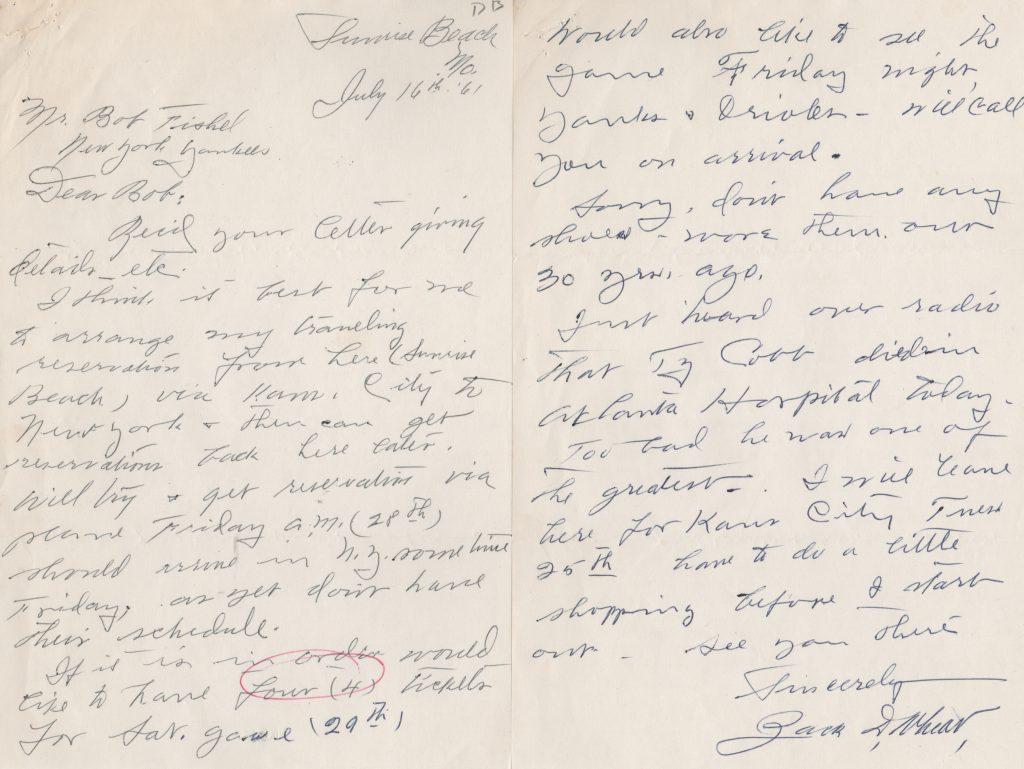 DB
Sunrise Beach
Mo.
July 16th '61
Mr. Bob Fishel
New York Yankees
Dear Bob:
Rec'd your letter giving
details etc.
I think it best for me
to arrange my traveling
reservation from here (Sunrise
Beach) via Kans. City to
New York & then can get
reservations back here later.
Will try & get reservation via
plane Friday a.m. (28th)
should arrive in N.Y. sometime
Friday. as yet don't have
their schedule.
If it is in order would
like to have four (4) tickets
for Sat. game (29th)
Would also like to see the
game Friday night,
Yanks & Orioles - will call
you on arrival.
Sorry, don't have any
shoes - wore them out
30 yrs. ago.
Just heard over radio
that Ty Cobb died in
Atlanta Hospital today.
Too bad he was one of
the greatest. I will leave
here for Kans City Tues
25th have to do a little
shopping before I start
out - see you there
Sincerely
Zack D. Wheat,